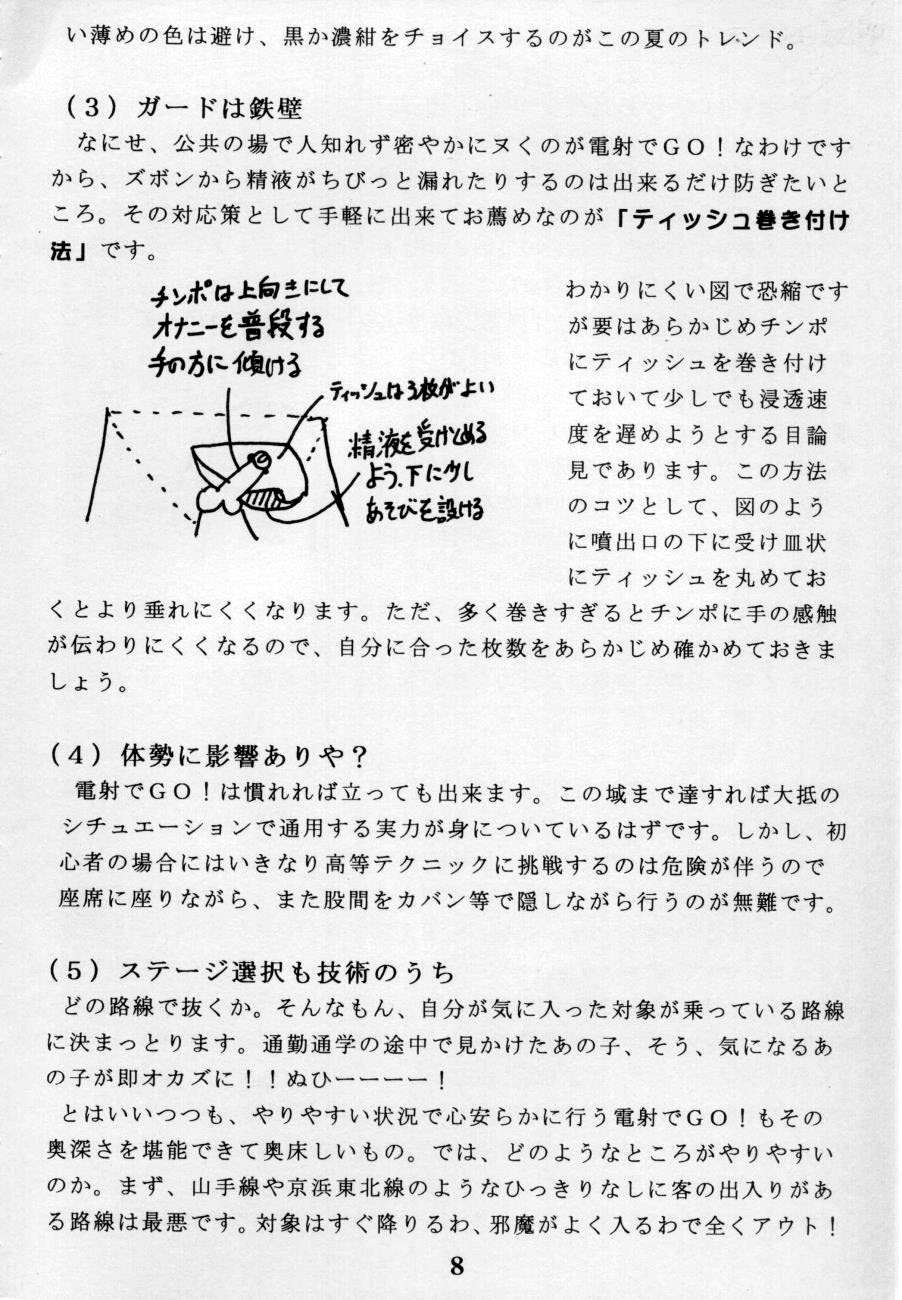 い薄めの色は避け、黒か濃紺をチョイスするのがこの夏のトレンド。
(3)ガードは鉄壁
なにせ、公共の場で人知れず密やかにヌくのが電射でGO！なわけです
から、ズボンから精液がちびっと漏れたりするのは出来るだけ防ぎたいと
ころ。その対応策として手軽に出来てお薦めなのが「ティッシュ巻き付け
法」です。
チンポは上向きにして
オナニーを普段する
手の方に傾ける
ティッシュは3枚がよい
精液を受けとめる
よう、下に少し
あそびを設ける
わかりにくい図で恐縮です
が要はあらかじめチンポ
にティッシュを巻き付け
ておいて少しでも浸透速
度を遅めようとする目論
見であります。この方法
のコツとして、図のよう
に噴出口の下に受け皿状
にティッシュを丸めてお
くとより垂れにくくなります。ただ、多く巻きすぎるとチンポに手の感触
が伝わりにくくなるので、自分に合った枚数をあらかじめ確かめておきま
しょう。
(4)体勢に影響ありや？
電射でGO！は慣れれば立っても出来ます。この域まで達すれば大抵の
シチュエーションで通用する実力が身についているはずです。しかし、初
心者の場合にはいきなり高等テクニックに挑戦するのは危険が伴うので
座席に座りながら、また股間をカバン等で隠しながら行うのが無難です。
(5)ステージ選択も技術のうち
どの路線で抜くか。そんなもん、自分が気に入った対象が乗っている路線
に決まっとります。通勤通学の途中で見かけたあの子、そう、気になるあ
の子が即オカズに！！ぬひーーーー！
とはいいつつも、やりやすい状況で心安らかに行う電射でGO！もその
奥深さを堪能できて奥床しいもの。では、どのようなところがやりやすい
のか。まず、山手線や京浜東北線のようなひっきりなしに客の出入りがあ
る路線は最悪です。対象はすぐ降りるわ、邪魔がよく入るわで全くアウト！
8